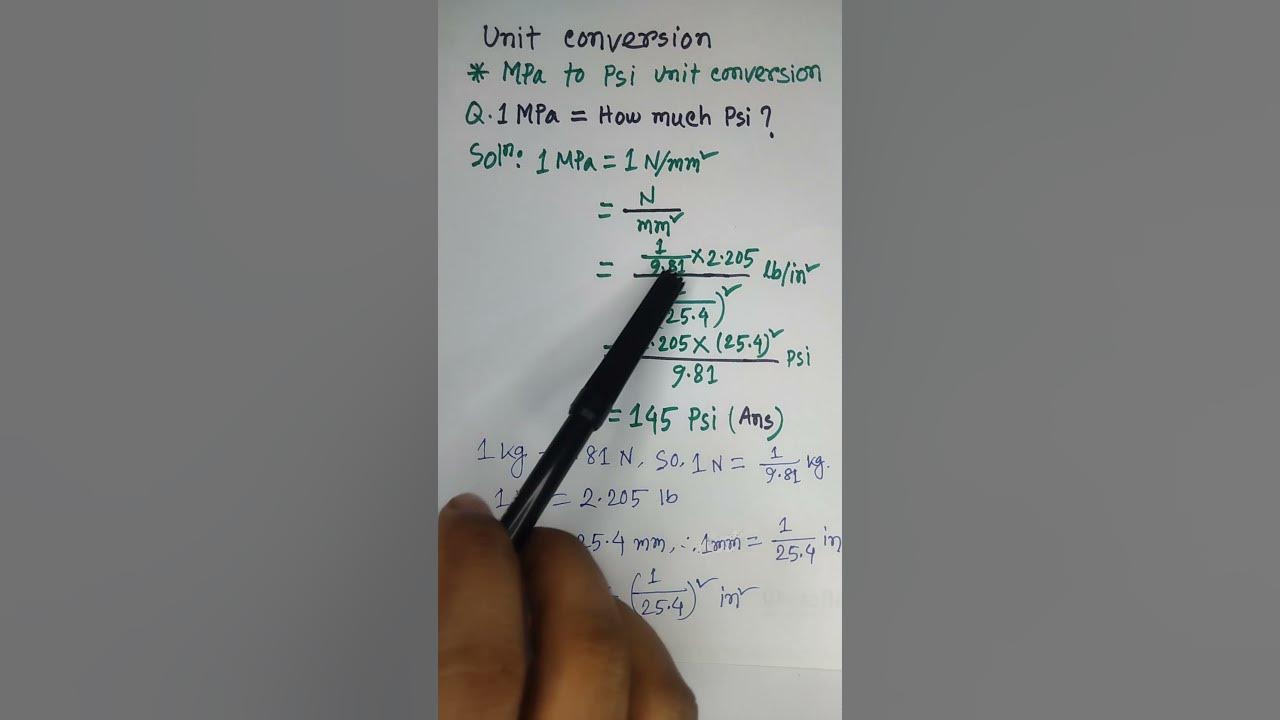 Unit conversion
* MPa to Psi unit conversion
Q. 1 MPa = How much Psi ?
Solⁿ: 1 MPa = 1 N/mm²
= N
mm²
= 1
9.81 × 2.205 lb/in²
25.4)²
.205 × (25.4)² Psi
9.81
= 145 Psi (Ans)
1 kg 81 N, So. 1 N = 1/9.81 kg.
1 = 2.205 lb
25.4 mm, ∴ 1mm = 1/25.4 in
= (1/25.4)² in²